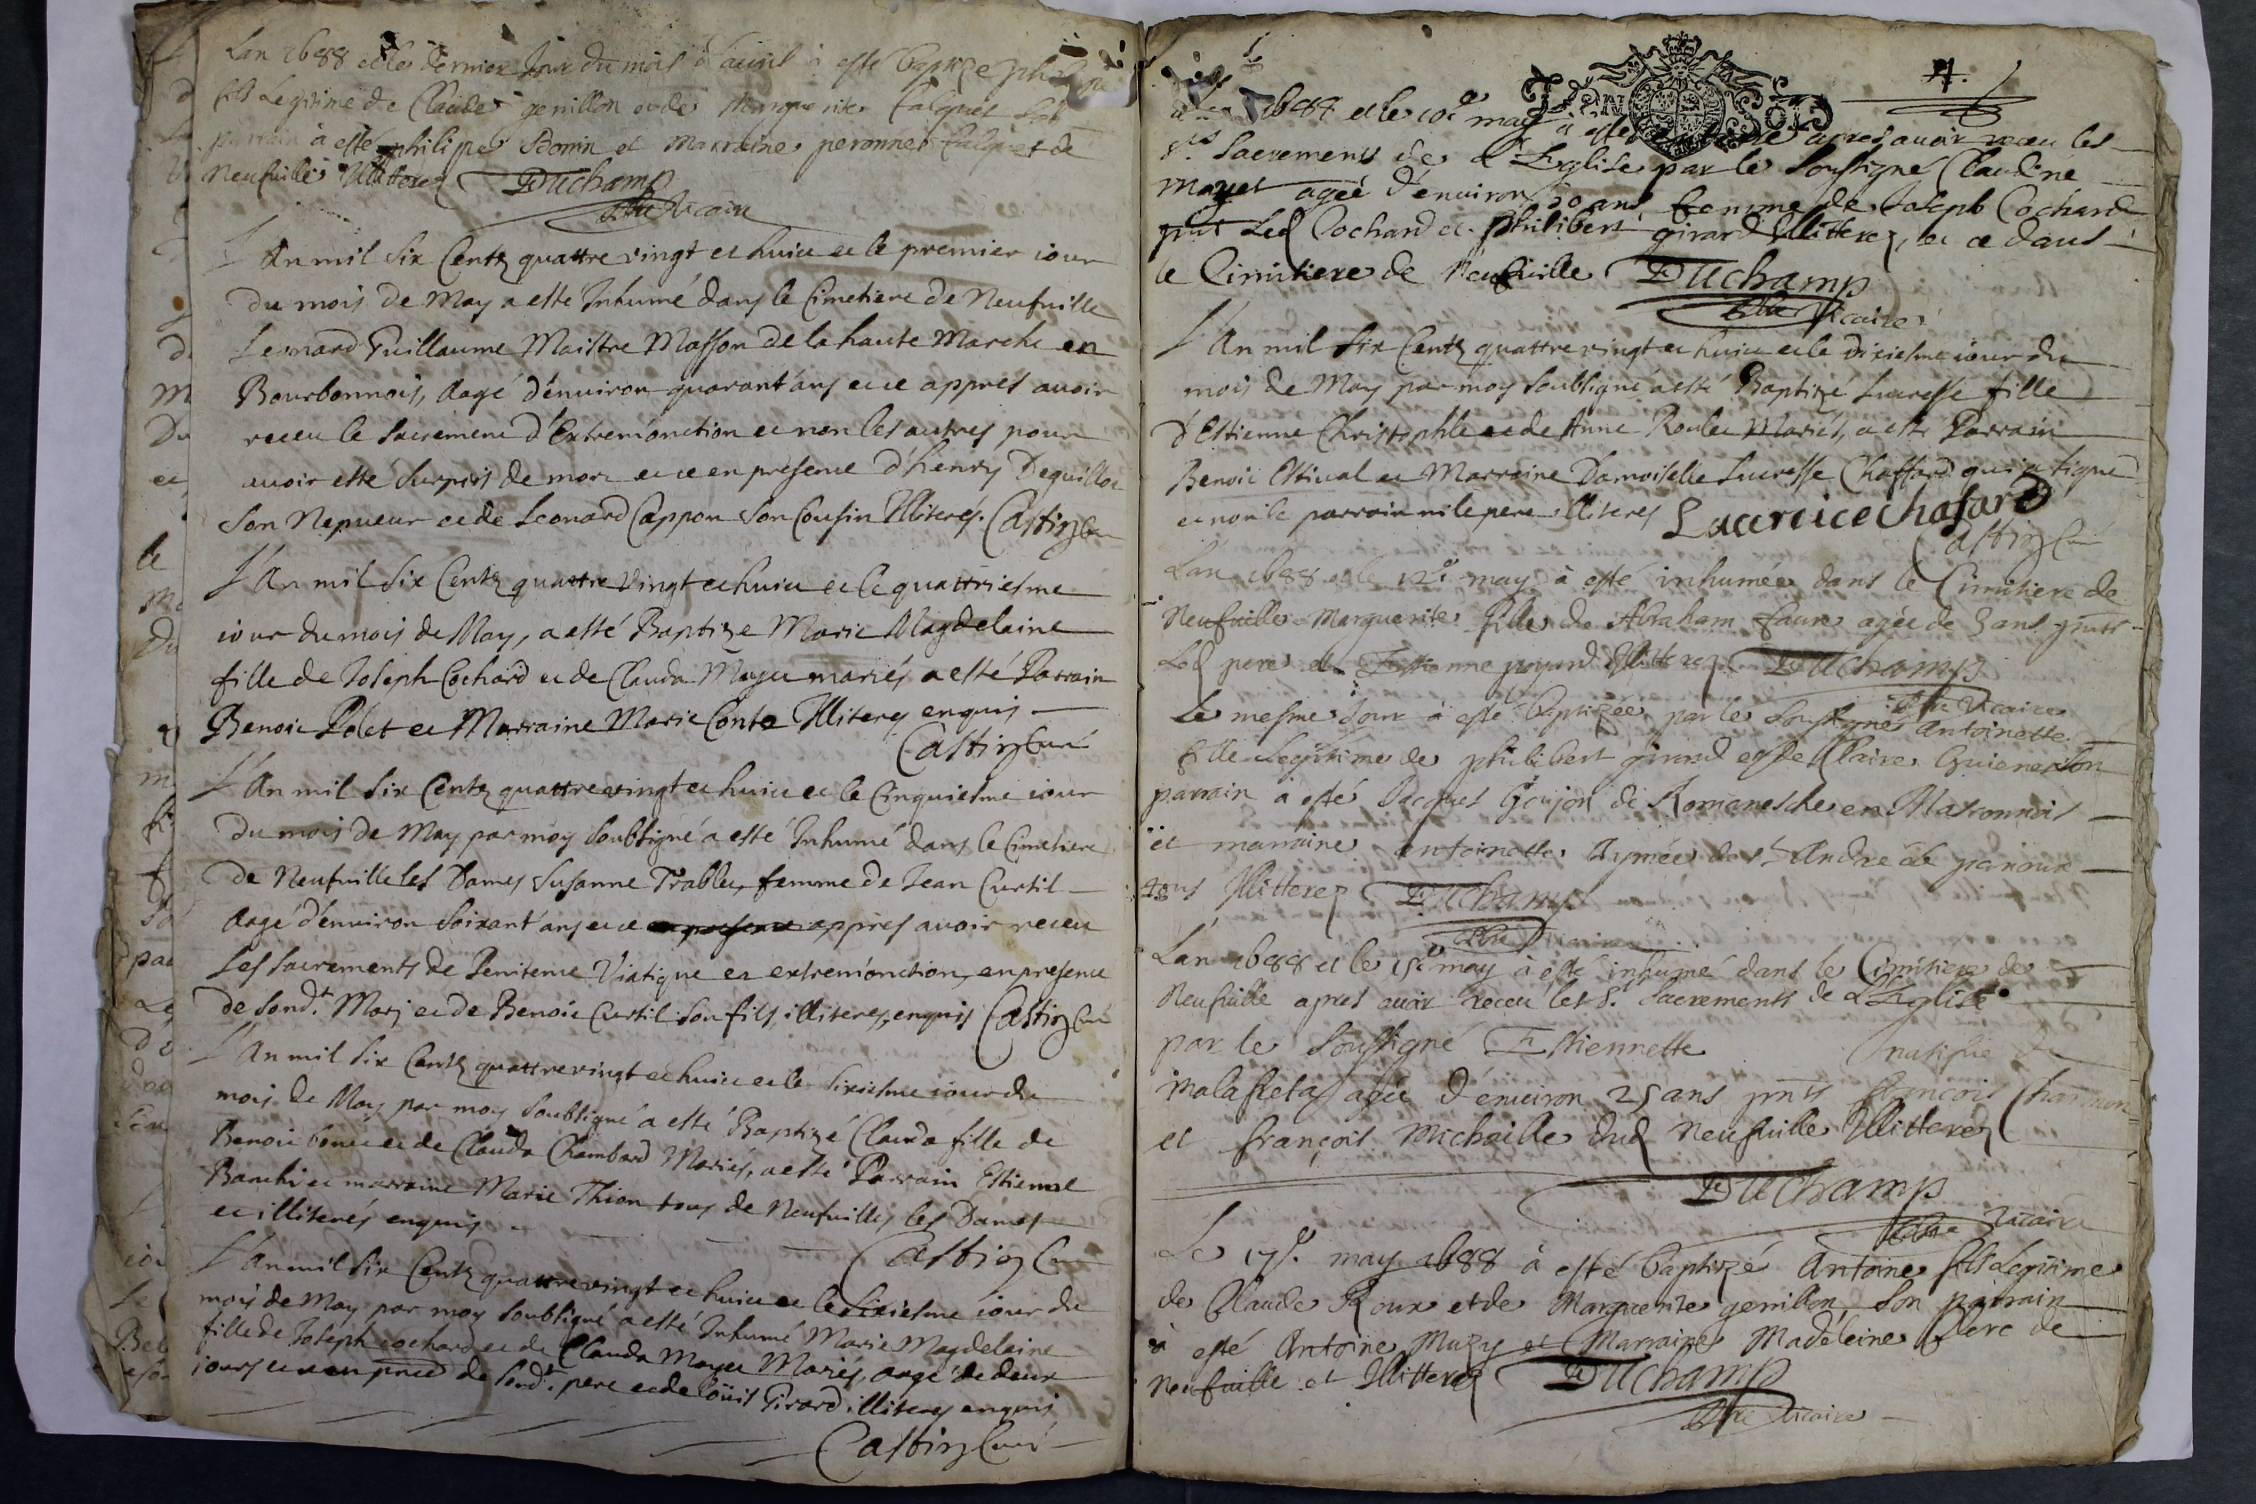 Lan 1688 et le dernier Jour du mois d'auril à esté baptizé
fils Legitime de Claude genillon et de Marguerite falques son
parrain à esté philipe Bonin et Marraine peronne falques de
Neufuille Illitterez Duchamp
Pbre Vicaire
L'An mil six Centz quattre vingt et huict et le premier iour
du mois de May a esté Inhumé dans le Cimetiere de Neufuille
Leonard Guillaume Maistre Masson de la haute Marche en
Bourbonnois, aagé d'enuiron quarant'ans et ce appres auoir
receu le sacrement d'Extremonction et non les autres pour
auoir esté surpris de mort et ce en presence d'henry Dequillon
son Nepueur et de Leonard Cappon son Cousin Illiterés. Castin Curé
L'An mil six Centz quattre Vingt et huict et le quattriesme
iour du mois de May, a esté Baptize Marie Magdelaine
fille de Joseph Cochard et de Clauda Mayet mariés a esté Parrain
Benoit Polet et Marraine Marie Conte Illiterez enquis
Castin Curé
L'An mil six Centz quattre vingt et huict et le Cinquiesme iour
du mois de May par moy soubsigné a esté Inhumé dans le Cimetiere
de Neufuille les Dames Susanne Trablet femme de Jean Curtil
aagé d'enuiron soixant'ans et ce en presence appres auoir receu
les sacrements de Penitence Viatique et extremonction, en presence
de sond.t Mary et de Benoit Curtil son fils, illiteres, enquis Castin Curé
L'An mil six Centz quattre vingt et huict et le sixiesme iour du
mois de May par moy soubsigné a esté Baptizé Clauda fille de
Benoit bouu et de Clauda Chambard Mariés, a esté Parrain Estienne
Bauchi et marraine Marie Thion tous de Neufuille les Dames
et illiterés enquis
Castin Curé
L'An mil six Centz quattre vingt et huict et le sixiesme iour du
mois de May par moy soubsigné a esté Inhumé Marie Magdelaine
fille de Joseph cochard et de Clauda Mayet Mariés, aagé de deux
iours et ce en pnce de sond.t pere et de loüis Girard illiteres enquis
Castin Curé
4.
1688 et le 10e may à esté apres auoir receu les
s.ts Sacrements de L'Eglise par le soussigné Claudine
Mayet agée d'enuiron 30 ans femme de Joseph Cochard
pnts Led Cochard et philibert girard Illitterez, et ce dans
le Cimitiere de Neufuille Duchamp
Pbre Vicaire
L'An mil six Centz quattre vingt et huict et le dixiesme iour du
mois de May par moy soubsigné a esté Baptizé Lucresse fille
d'Estienne Christophle et de Anne Roulet Mariés, a esté Parrain
Benoit Estiual et Marraine Damoiselle Lucresse Chaffard qui a signé
et non le parrain ni le pere illiteres Lucreice chafard
Castin Curé
Lan 1688 et le 12e may à esté inhumée dans le Cimitiere de
Neufuille Marguerite fille de Abraham faure agée de 3 ans pnts
Led pere et Estienne poyard Illitterez Duchamp
Pbre Vicaire
Le mesme Jour à esté baptizée par le soussigné Antoinette
fille Legitime de philibert girard et de Claire Guienet son
parrain a esté Jacques Goujon de Romanesche en Masconnois
et marraine antoinette Aymée de st André de
tous Illitterez Duchamp
Pbre Vicaire
Lan 1688 et le 15e may à esté inhumé dans le Cimitiere de
Neufuille apres auoir receu les s.ts Sacrements de L'Eglise
par le soussigné Estiennette natifue de
Malafreta agée d'enuiron 25 ans pnts françois
et françois Michaille dud Neufuille Illitterez
Duchamp
Pbre Vicaire
Le 17e. may 1688 à esté baptizé Antoine fils Legitime
de Claude Roux et de Marguerite genillon, son parrain
à esté Antoine Muzy et Marraine Madeleine Clerc de
Neufuille et Illitterez Duchamp
Pbre Vicaire